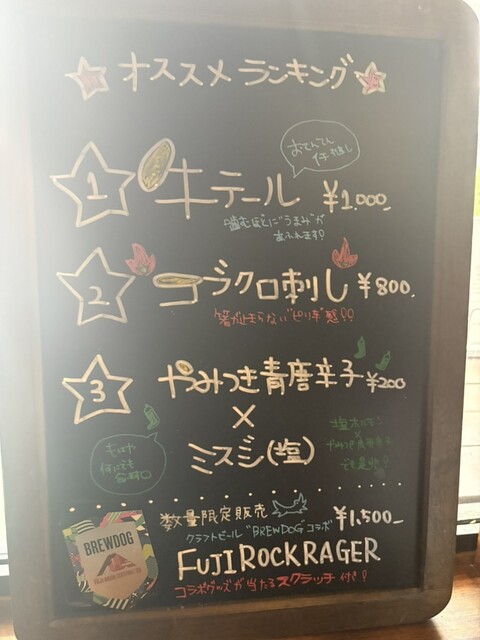 オススメランキング
おてんてん
イチ推し
1 牛テール ¥1,000-
噛むほどに"うまみ"が
あふれます!
2 コブクロ刺し ¥800.
箸が止まらない"ピリ辛"感!!
3 やみつき青唐辛子 ¥200
×
ミスジ(塩)
もはや
何にでも
合う
塩ホルモン
×
やみつき青唐辛子
でも是非!
数量限定販売
クラフトビール"BREWDOG"コラボ
¥1,500-
FUJIROCKRAGER
コラボグッズが当たるスクラッチ付き!
BREWDOG